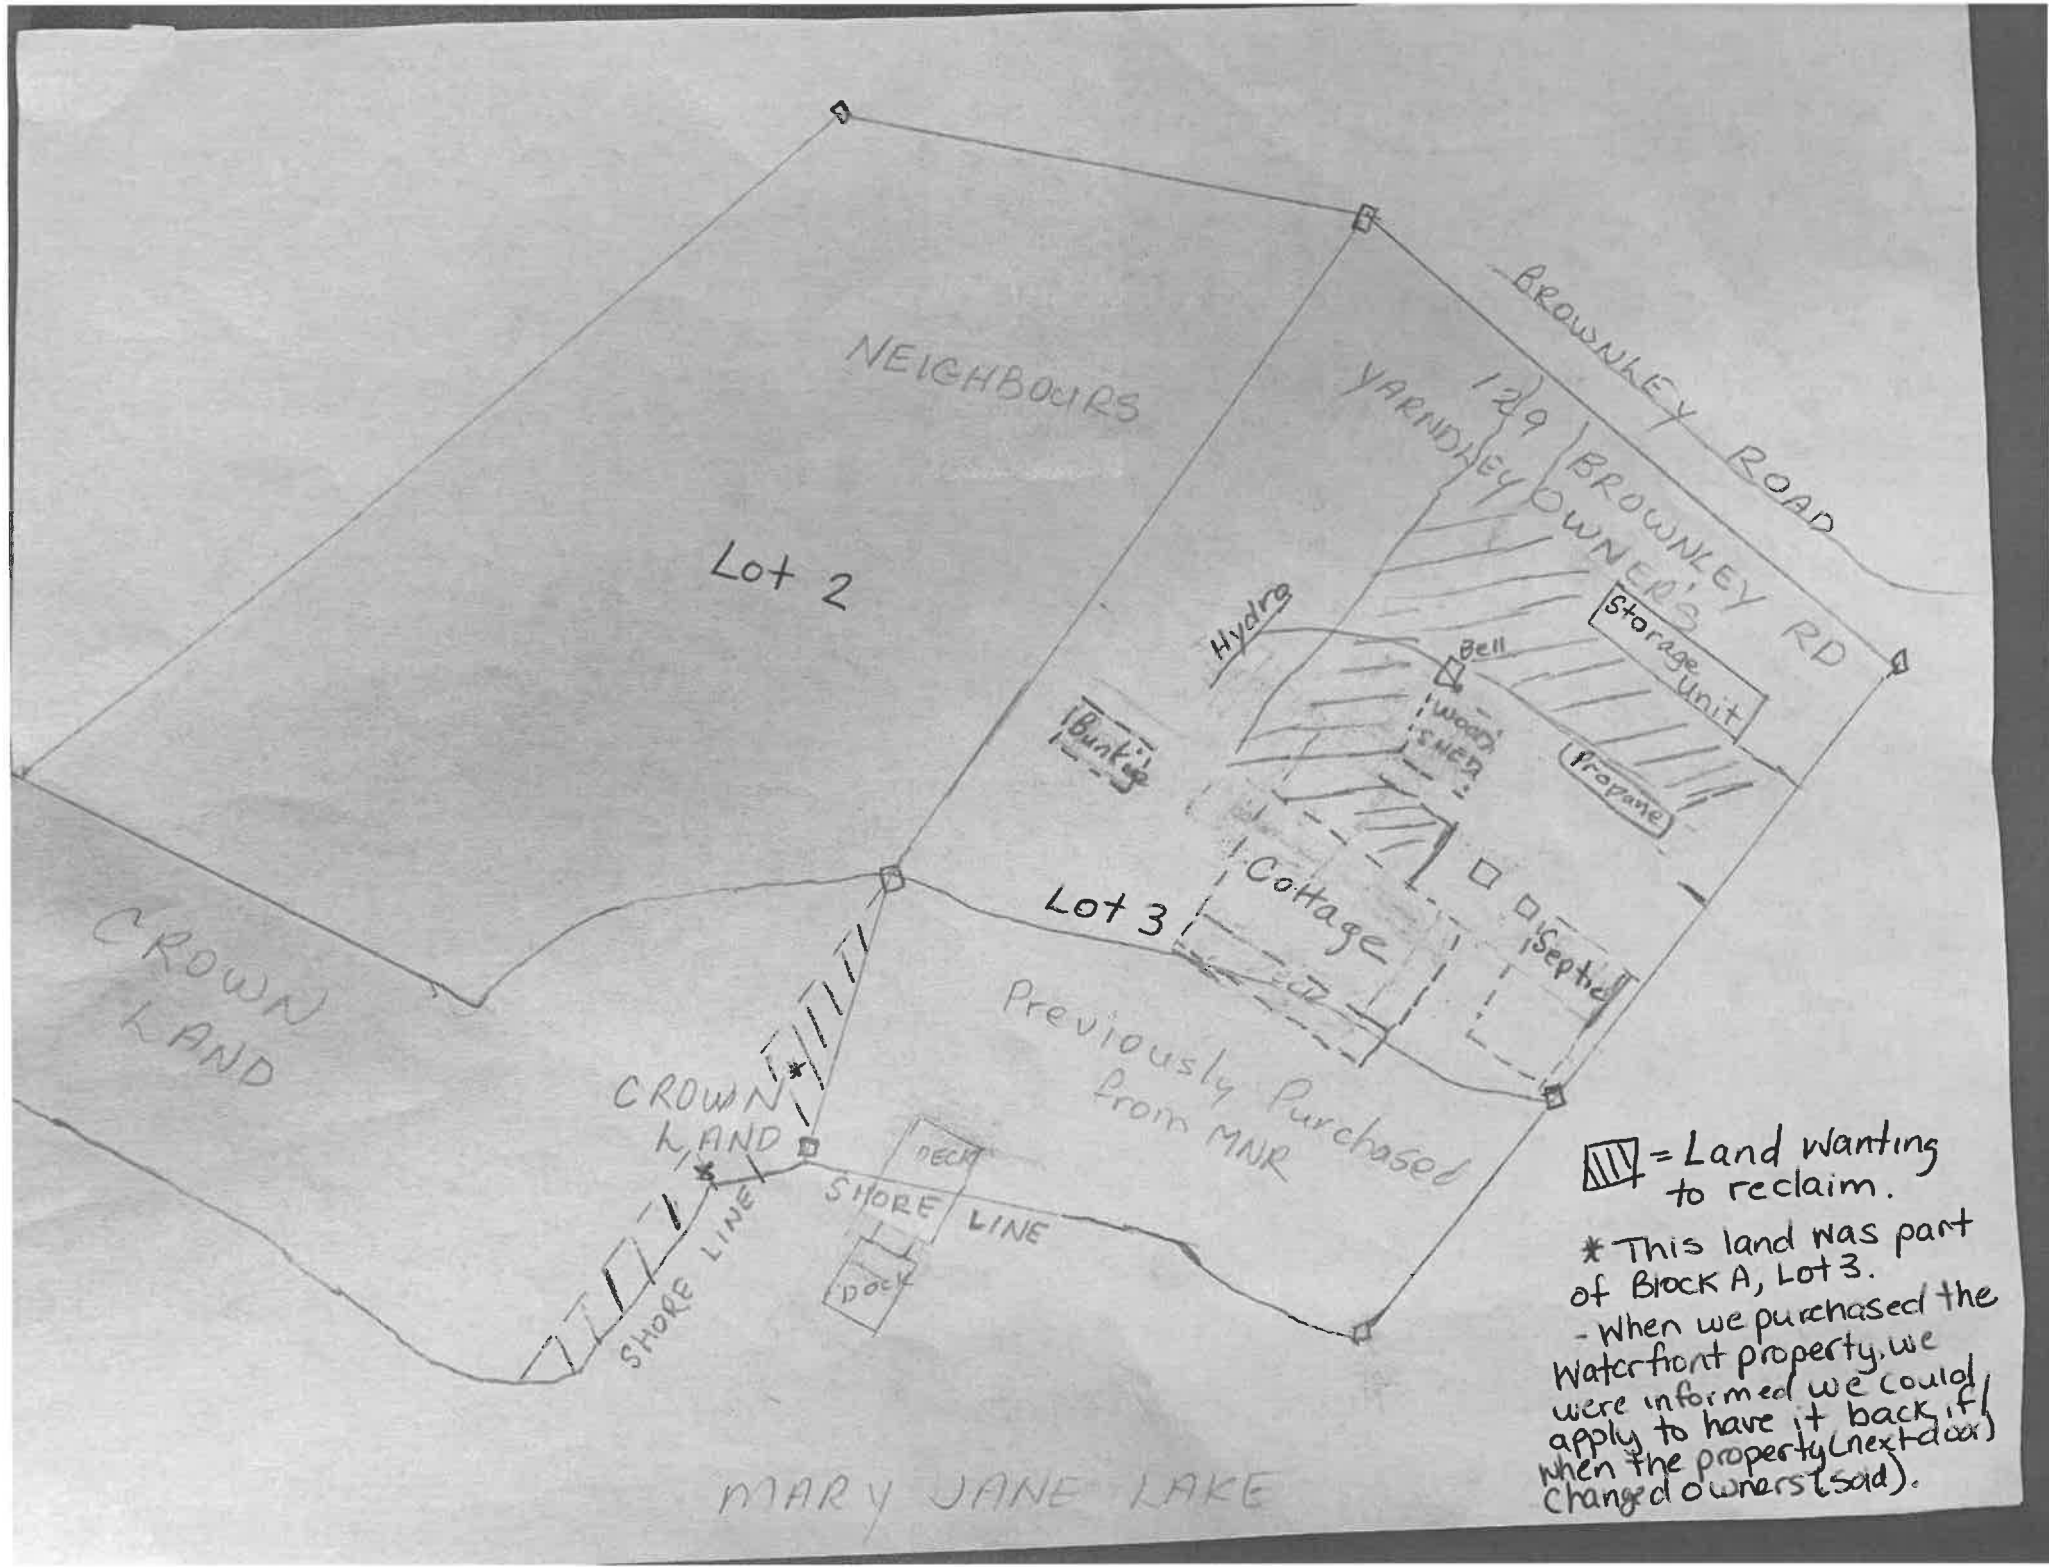 BROWNLEY ROAD
129 BROWNLEY RD
YARNDLEY OWNER'S
NEIGHBOURS
Lot 2
Hydro
Bell
Storage
unit
WOOD
SHED
Bunkie
Propane
Cottage
Lot 3
Septic
CROWN
LAND
Previously Purchased
from MNR
CROWN
LAND
*
*
DECK
SHORE LINE
SHORE LINE
DOCK
MARY JANE LAKE
= Land wanting
to reclaim.
* This land was part
of Block A, Lot 3.
- When we purchased the
Waterfront property, we
were informed we could
apply to have it back if/
when the property (next door)
changed owners (sold).